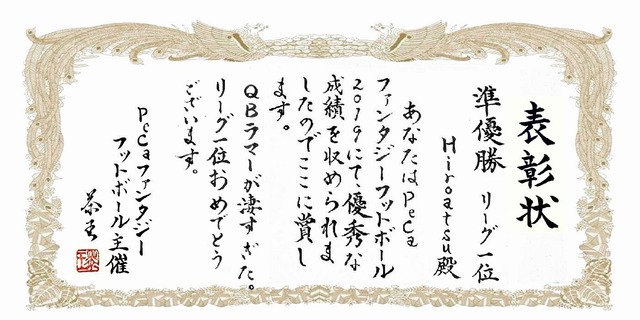 表彰状
準優勝 リーグ一位
Hiroatsu殿
あなたはPeCa
ファンタジーフットボール
2019にて、優秀な
成績を収められま
したのでここに賞し
ます。
QBラマーが凄すぎた。
リーグ一位おめでとう
ございます。
PeCaファンタジー
フットボール主催